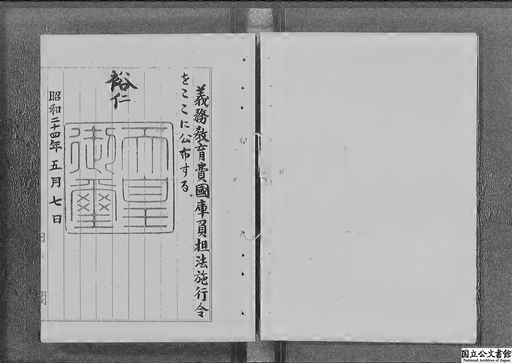 義務教育費國庫負担法施行令
をここに公布する。
裕仁
天皇
御璽
昭和二十四年五月七日
国立公文書館
National Archives of Japan